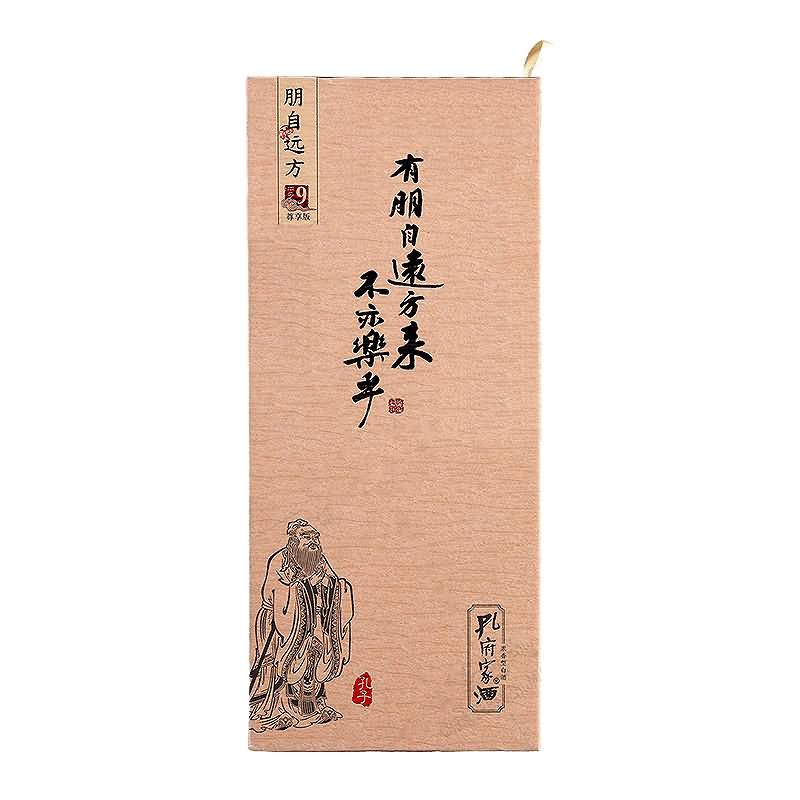 朋自远方
9
尊享版
有朋自遠方来
不亦樂乎
孔子
孔府家酒
浓香型白酒